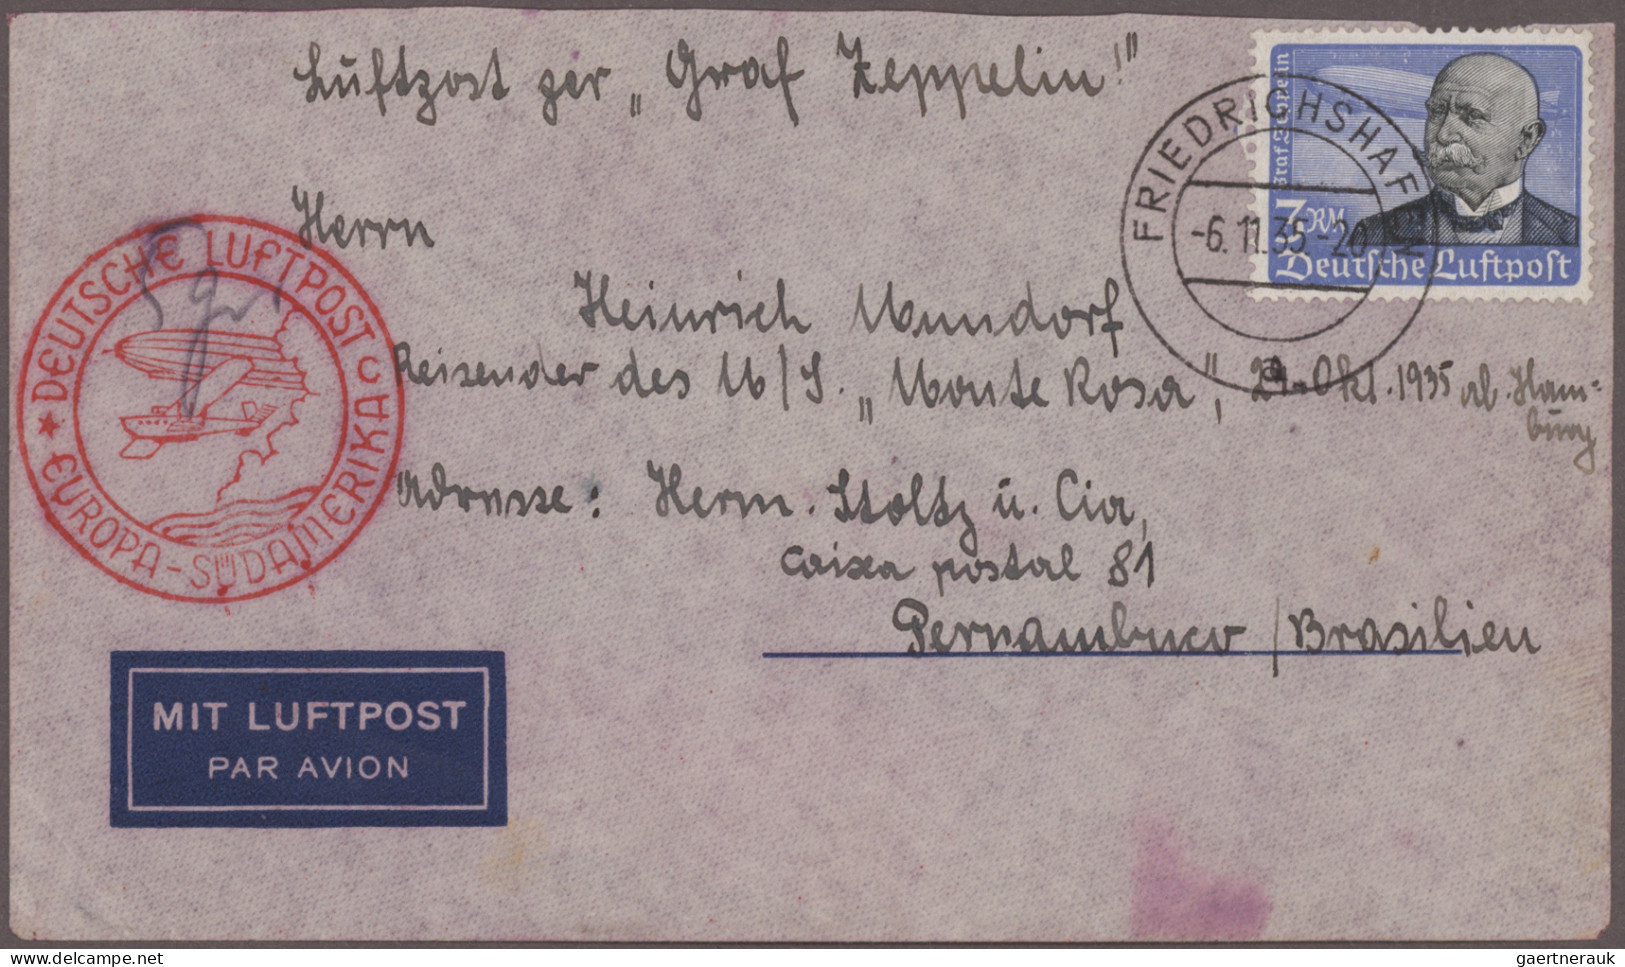 Luftpost per „Graf Zeppelin!"
Graf Zeppelin
3 RM
Deutsche Luftpost
FRIEDRICHSHAFEN
-6.11.35.-20
a
Herrn
Heinrich Mundorf
Reisender des M/S. „Monte Rosa", 29. Okt. 1935 ab. Ham-
burg
Adresse: Herm. Stoltz u. Cia,
Caixa postal 81
Pernambuco / Brasilien
★ DEUTSCHE LUFTPOST
EUROPA-SÜDAMERIKA
MIT LUFTPOST
PAR AVION
gaertnerauk